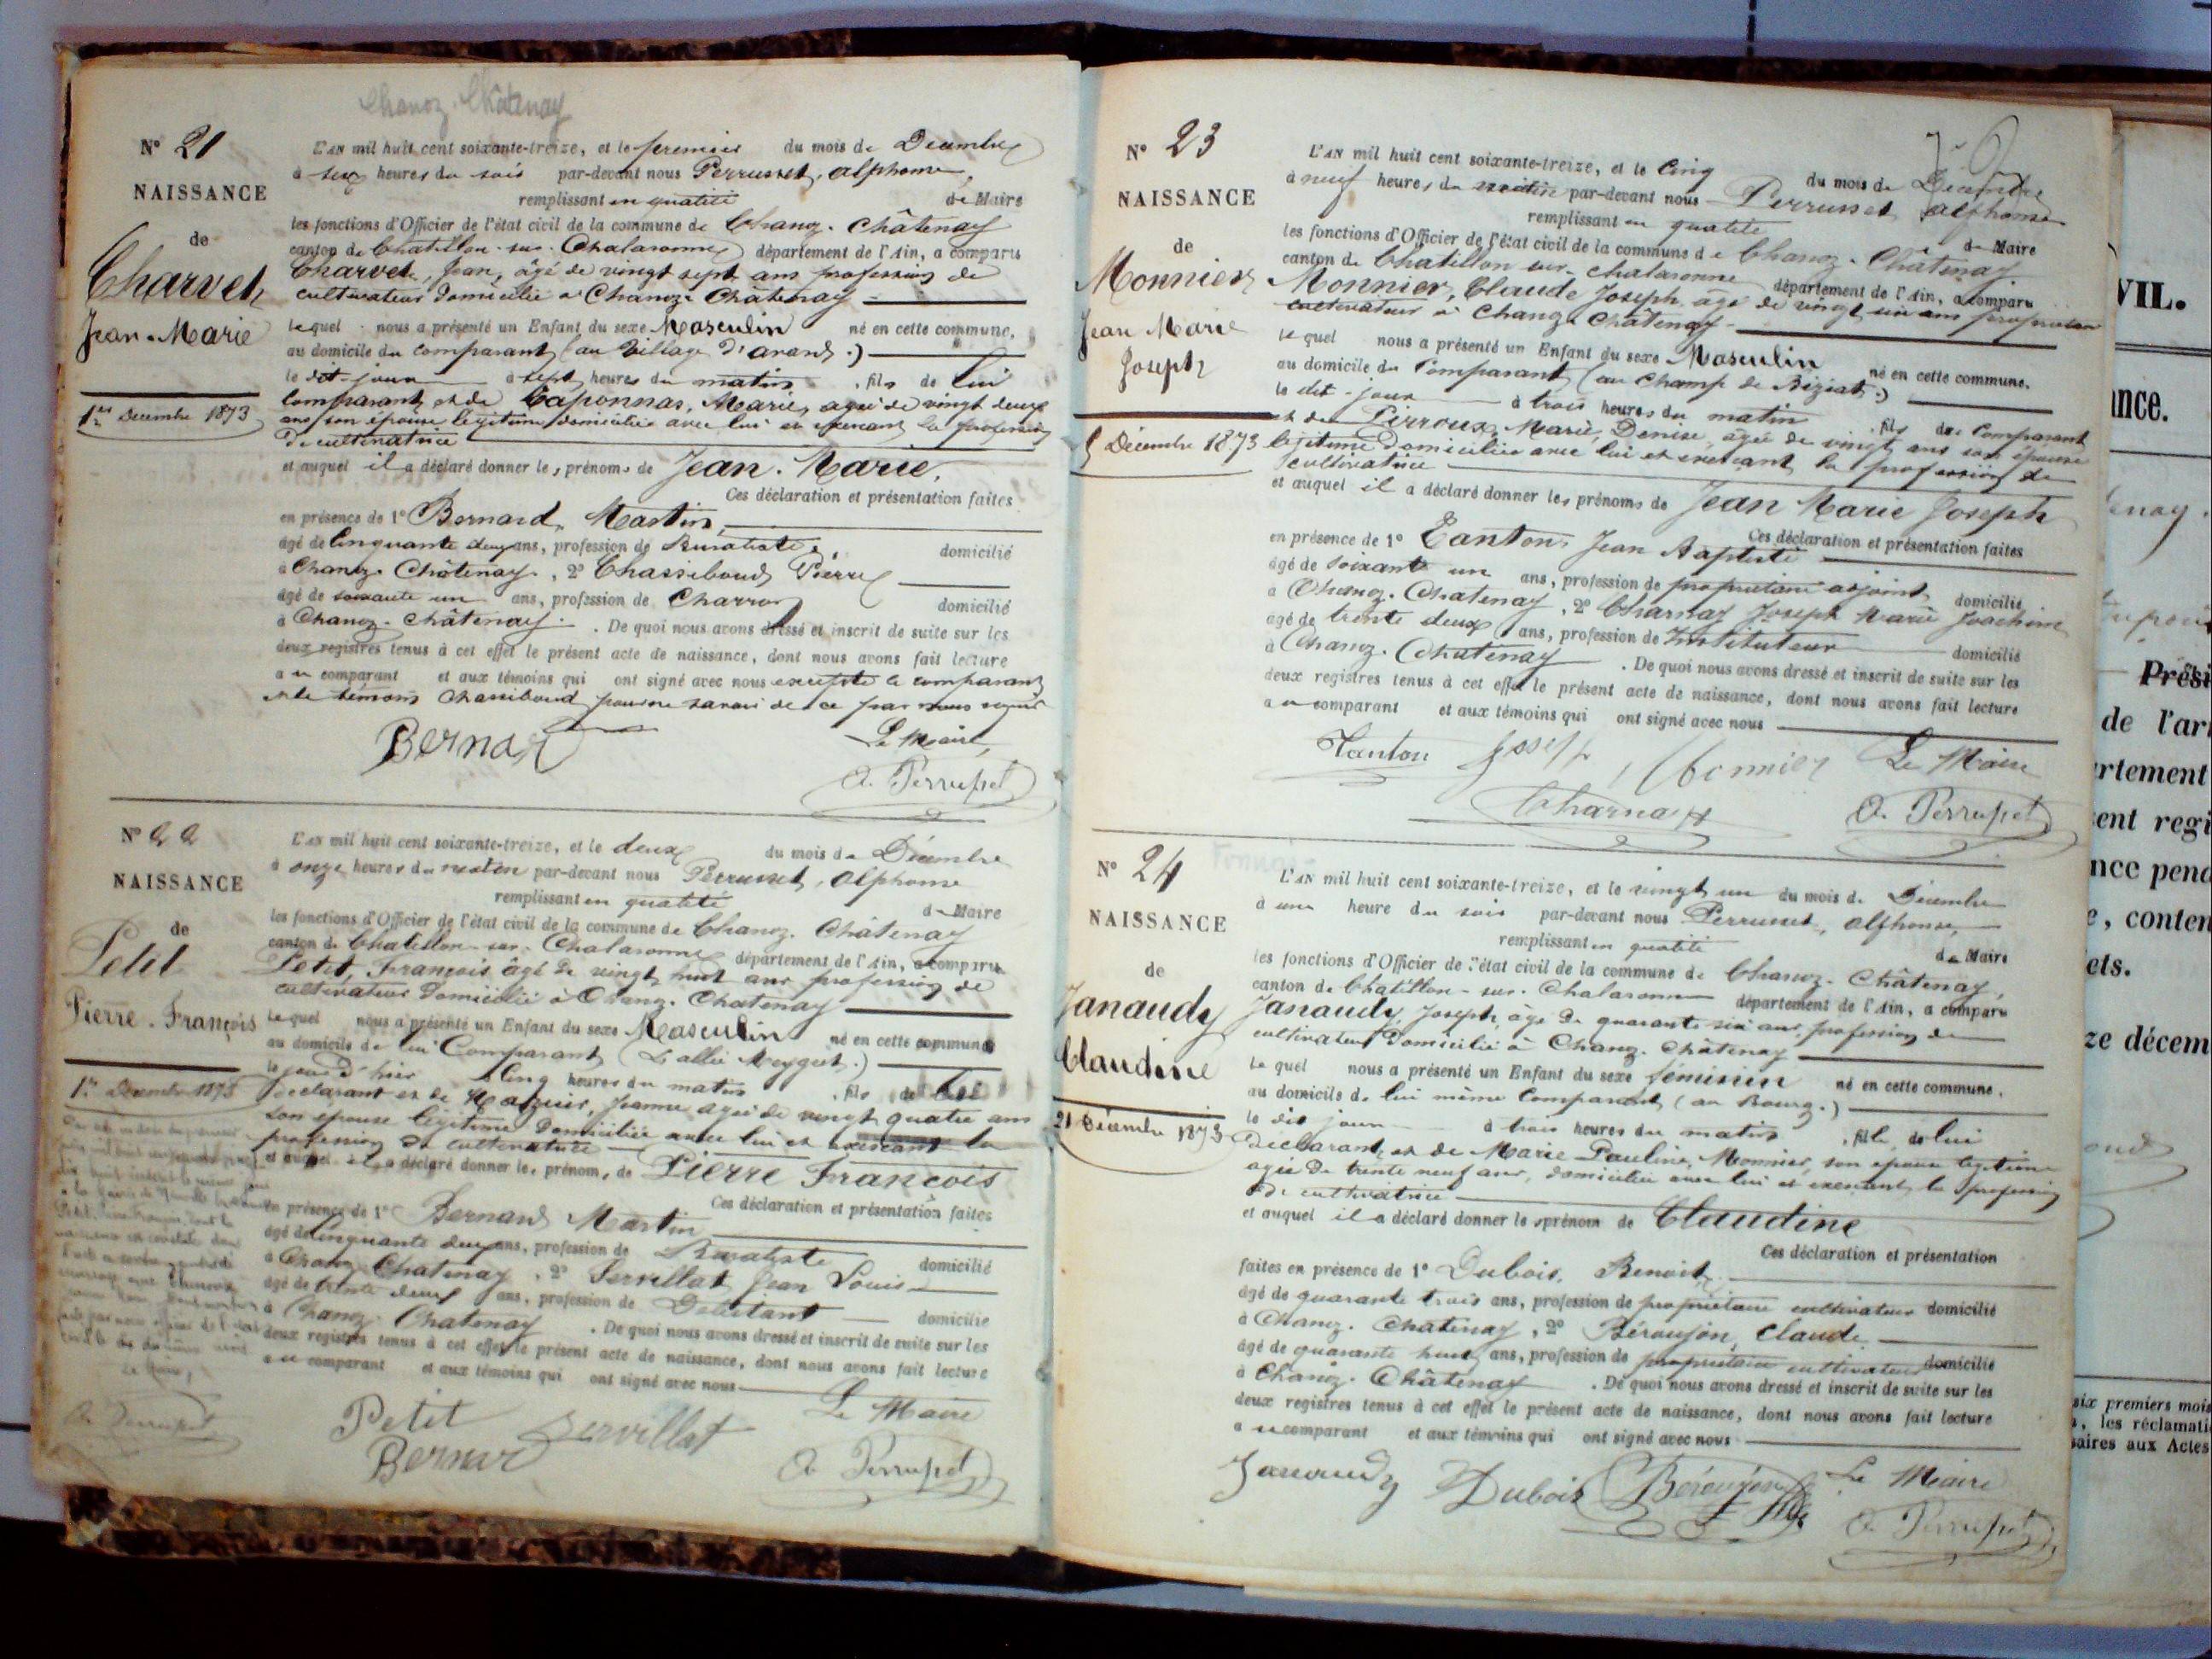 Chanoz-Châtenay
N° 21
NAISSANCE
de
Charvet
Jean-Marie
1er Décembre 1873
L'AN mil huit cent soixante-treize, et le premier du mois de Décembre
à six heures du soir par-devant nous Perrusset, Alphonse,
remplissant en qualité de Maire
les fonctions d'Officier de l'état civil de la commune de Chanoz-Châtenay
canton de Chatillon-sur-Chalaronne département de l'Ain, a comparu
Charvet, Jean, âgé de vingt sept ans profession de
cultivateur domicilié à Chanoz-Châtenay
lequel nous a présenté un Enfant du sexe Masculin né en cette commune,
au domicile du comparant (au village d'avant.)
le dit-jour à sept heures du matin, fils de lui
comparant et de Caponnas, Marie, agée de vingt deux
ans son épouse légitime domiciliée avec lui et exerçant la profession
de cultivatrice
et auquel il a déclaré donner les prénoms de Jean-Marie,
Ces déclaration et présentation faites
en présence de 1° Bernard, Martin,
âgé de cinquante deux ans, profession de Buraliste, domicilié
à Chanoz-Châtenay, 2° Chassiboud Pierre
âgé de soixante un ans, profession de Charron domicilié
à Chanoz-Châtenay. De quoi nous avons dressé et inscrit de suite sur les
deux registres tenus à cet effet le présent acte de naissance, dont nous avons fait lecture
au comparant et aux témoins qui ont signé avec nous excepté le comparant
et le témoin Chassiboud pour ne savoir de ce par nous requis
Bernar
Le Maire,
A. Perrusset
N° 22
NAISSANCE
de
Petit
Pierre-François
1er Décembre 1873
L'AN mil huit cent soixante-treize, et le deux du mois de Décembre
à onze heures du matin par-devant nous Perrusset, Alphonse
remplissant en qualité de Maire
les fonctions d'Officier de l'état civil de la commune de Chanoz-Châtenay
canton de Chatillon-sur-Chalaronne département de l'Ain, a comparu
Petit, François âgé de vingt huit ans profession de
cultivateur domicilié à Chanoz-Chatenay
lequel nous a présenté un Enfant du sexe Masculin né en cette commune
au domicile de lui Comparant
le jour d'hier à Cinq heures du matin, fils de lui
déclarant et de Jeanne agée de vingt quatre ans
son épouse légitime domiciliée avec lui et exerçant la
profession de cultivatrice
et auquel il a déclaré donner les prénoms de Pierre François
Ces déclaration et présentation faites
en présence de 1° Bernard Martin
âgé de cinquante deux ans, profession de Buraliste domicilié
à Chanoz Chatenay, 2° Servillat Jean Louis
âgé de trente deux ans, profession de Débitant domicilié
à Chanoz-Chatenay. De quoi nous avons dressé et inscrit de suite sur les
deux registres tenus à cet effet le présent acte de naissance, dont nous avons fait lecture
au comparant et aux témoins qui ont signé avec nous
Le Maire,
A. Perrusset
Petit
Servillat
Bernar
Le Maire
A. Perrusset
N° 23
NAISSANCE
de
Monnier
Jean Marie
Joseph
5 Décembre 1873
L'AN mil huit cent soixante-treize, et le Cinq du mois de Décembre
à neuf heures du matin par-devant nous Perrusset Alphonse
remplissant en qualité de Maire
les fonctions d'Officier de l'état civil de la commune de Chanoz-Châtenay
canton de Chatillon sur-Chalaronne département de l'Ain, a comparu
Monnier, Claude Joseph âgé de vingt six ans profession
cultivateur à Chanoz Châtenay
lequel nous a présenté un Enfant du sexe Masculin né en cette commune.
au domicile du Comparant (au Champ de Béziat.)
le dit-jour à trois heures du matin, fils du Comparant
et de Pirroux, Marie, Denise, âgée de vingt ans son épouse
légitime domiciliée avec lui et exerçant la profession de
cultivatrice
et auquel il a déclaré donner les prénoms de Jean Marie Joseph
Ces déclaration et présentation faites
en présence de 1° Tanton, Jean Baptiste
âgé de soixante un ans, profession de propriétaire adjoint domicilié
à Chanoz-Chatenay, 2° Charnay Joseph Marie Joachim
âgé de trente deux ans, profession de Instituteur domicilié
à Chanoz-Chatenay. De quoi nous avons dressé et inscrit de suite sur les
deux registres tenus à cet effet le présent acte de naissance, dont nous avons fait lecture
au comparant et aux témoins qui ont signé avec nous
Tanton Joseph Monnier Le Maire
Charnay A. Perrusset
N° 24
NAISSANCE
de
Janaudy
Claudine
21 Décembre 1873
L'AN mil huit cent soixante-treize, et le vingt un du mois de Décembre
à une heure du soir par-devant nous Perrusset, Alphonse,
remplissant en qualité de Maire
les fonctions d'Officier de l'état civil de la commune de Chanoz-Châtenay,
canton de Chatillon-sur-Chalaronne département de l'Ain, a comparu
Janaudy, Joseph, âgé de quarante six ans, profession de
cultivateur domicilié à Chanoz-Châtenay
lequel nous a présenté un Enfant du sexe féminin né en cette commune.
au domicile de lui même Comparant (au Bourg.)
le dit jour à trois heures du matin, fille de lui
déclarant et de Marie Pauline, Monnier, son épouse légitime
agée de trente neuf ans, domiciliée avec lui et exerçant la profession
de cultivatrice
et auquel il a déclaré donner le prénom de Claudine
Ces déclaration et présentation
faites en présence de 1° Dubois, Benoit
âgé de quarante trois ans, profession de propriétaire cultivateur domicilié
à Chanoz-Chatenay, 2° Béroujon, Claude
âgé de quarante huit ans, profession de propriétaire cultivateur domicilié
à Chanoz-Châtenay. De quoi nous avons dressé et inscrit de suite sur les
deux registres tenus à cet effet le présent acte de naissance, dont nous avons fait lecture
au comparant et aux témoins qui ont signé avec nous
Janaudy Dubois Béroujon Le Maire
A. Perrusset
VIL.
ance.
Prési
de l'art
artement
sent regi
nce pend
e, conten
ets.
ze décem
six premiers mois
, les réclamati
saires aux Actes